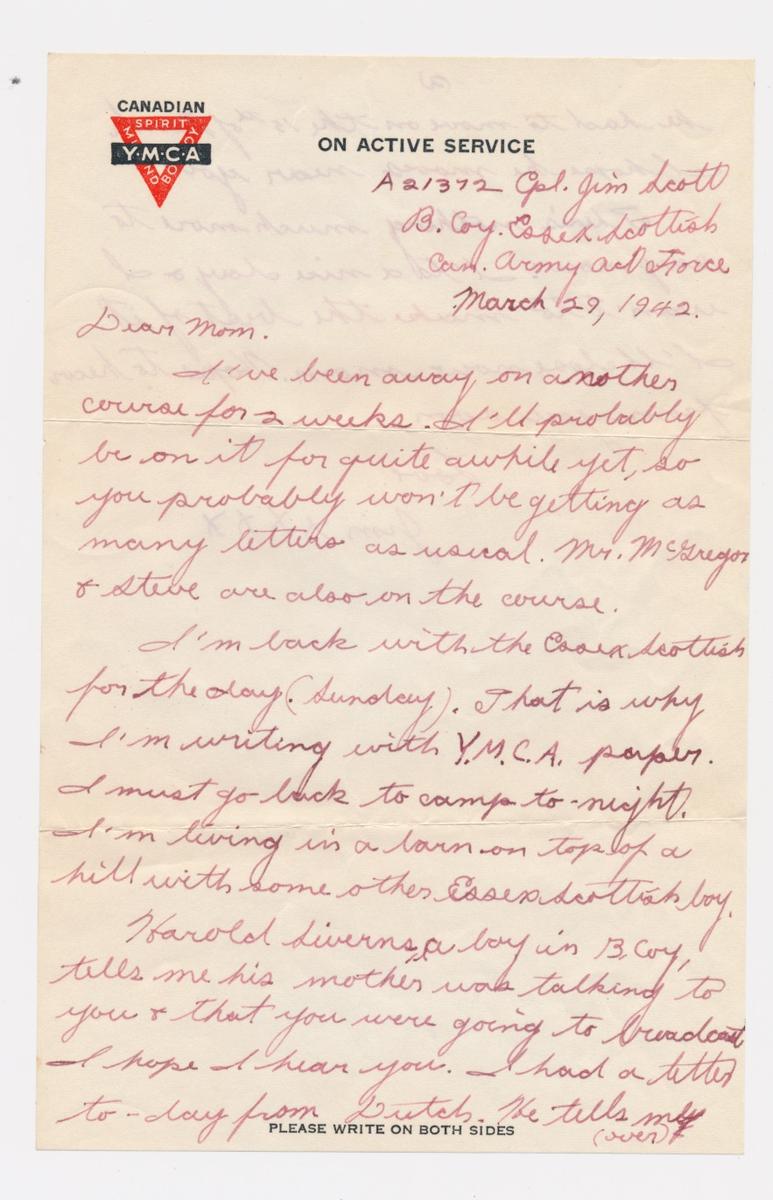 CANADIAN
SPIRIT
Y·M·C·A
MIND BODY
ON ACTIVE SERVICE
A21372 Cpl. Jim Scott
B. Coy. Essex Scottish
Can. Army Act Force
March 29, 1942.
Dear Mom.
I've been away on another
course for 2 weeks. I'll probably
be on it for quite awhile yet, so
you probably won't be getting as
many letters as usual. Mr. McGregor
& Steve are also on the course.
I'm back with the Essex Scottish
for the day (Sunday). That is why
I'm writing with Y.M.C.A. paper.
I must go back to camp to-night.
I'm living in a barn on top of a
hill with some other Essex Scottish boy.
Harold Siverns, a boy in B. Coy,
tells me his mother was talking to
you & that you were going to broadcast
I hope I hear you. I had a letter
to-day from Dutch. He tells me
PLEASE WRITE ON BOTH SIDES
(over)